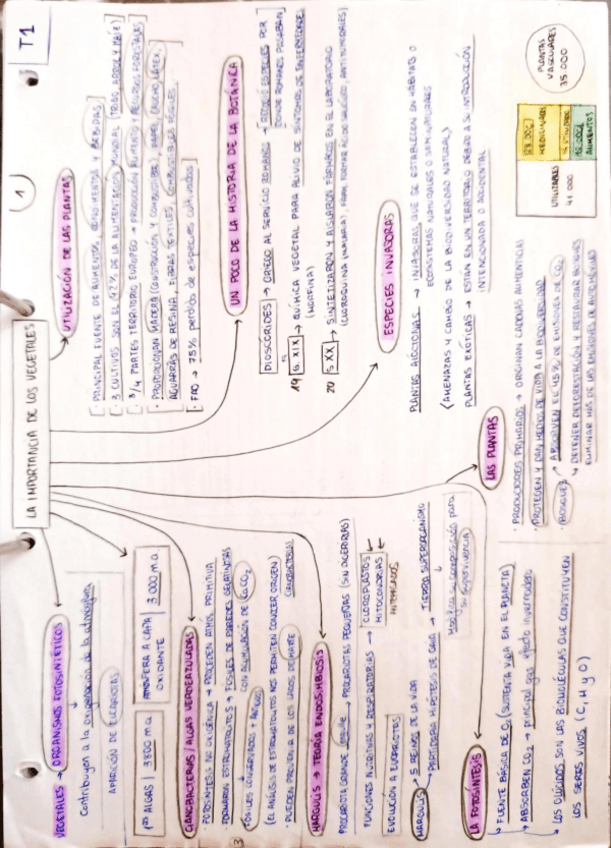 T1
1
LA IMPORTANCIA DE LOS VEGETALES
VEGETALES → ORGANISMOS FOTOSINTÉTICOS
Contribuyen a la oxigenación de la atmósfera
APARICIÓN DE EUCARIOTAS
1ªs ALGAS | 3800 m.a.
ATMÓSFERA A CAPA OXIDANTE | 3.000 m.a
CIANOBACTERIAS / ALGAS VERDEAZULADAS
· FOTOSÍNTESIS NO OXIGÉNICA → PROCEDEN ATMOS. PRIMITIVA
· FORMARON ESTROMATOLITOS → FÓSILES DE PAREDES GELATINOSAS
CON ACUMULACIÓN DE CaCO₂
3
FÓSILES CONSERVADOS + ANTIGUOS
(EL ANÁLISIS DE ESTROMATOLITOS NOS PERMITEN CONOCER ORIGEN)
CIANOBACTERIAS
· PUEDEN PROVENIR DE LOS LAGOS DE MARTE
MARGULIS → TEORÍA ENDOSIMBIOSIS
PROCARIOTA GRANDE → PROCARIOTAS PEQUEÑAS (SIN DIGERIRLAS)
FUNCIONES NUTRITIVAS Y RESPIRATORIAS → CLOROPLASTOS
MITOCONDRIAS
EVOLUCIÓN A EUCARIOTAS
MARGULIS → 5 REINOS DE LA VIDA
PARTIDARIA HIPÓTESIS DE GAIA → TIERRA SUPERORGANISMO
Modifica su composición para
su supervivencia
LA FOTOSÍNTESIS
FUENTE BÁSICA DE O₂ (SUSTENTA VIDA EN EL PLANETA)
ABSORBEN CO₂ → principal gas efecto invernadero
LOS GLÚCIDOS SON LAS BIOMOLÉCULAS QUE CONSTITUYEN
LOS SERES VIVOS (C, H y O)
UTILIZACIÓN DE LAS PLANTAS
· PRINCIPAL FUENTE DE ALIMENTOS, CONDIMENTOS Y BEBIDAS
· 3 CULTIVOS SON EL 42% DE LA ALIMENTACIÓN MUNDIAL (TRIGO, ARROZ Y MAÍZ)
· 3/4 PARTES TERRITORIO EUROPEO → PRODUCCIÓN ALIMENTO Y RECURSOS FORESTALES
· PROPORCIONAN MADERA (CONSTRUCCIÓN Y COMBUSTIBLE), PAPEL, CAUCHO, LÁTEX,
AGUARRÁS DE RESINA, FIBRAS TEXTILES, COMBUSTIBLES FÓSILES.
· FAO → 75% perdida de especies cultivadas
UN POCO DE LA HISTORIA DE LA BOTÁNICA
DIOSCÓRIDES → GRIEGO AL SERVICIO ROMANOS → RECOGIÓ ESPECIES POR
DONDE ROMANOS PASABAN
19 S. XIX → QUÍMICA VEGETAL PARA ALIVIO DE SÍNTOMAS DE ENFERMEDADES
(MORFINA)
20 S. XX → SINTETIZARON Y AISLARON FÁRMACOS EN EL LABORATORIO
ESPECIES INVASORAS
PLANTAS ALÓCTONAS → INVASORAS QUE SE ESTABLECEN EN HÁBITATS O
ECOSISTEMAS NATURALES O SEMINATURALES
(AMENAZAS Y CAMBIO DE LA BIODIVERSIDAD NATURAL)
PLANTAS EXÓTICAS → ESTÁN EN UN TERRITORIO DEBIDO A SU INTRODUCCIÓN
INTENCIONADA O ACCIDENTAL
LAS PLANTAS
· PRODUCTORES PRIMARIOS → ORIGINAN CADENAS ALIMENTICIAS
· PROTEGEN Y DAN MEDIOS DE VIDA A LA BIODIVERSIDAD
· BOSQUES → ABSORVEN EL 45% DE EMISIONES DE CO₂
DETENER DEFORESTACIÓN Y RESTAURAR BOSQUES
ELIMINAR MÁS DE LAS EMISIONES DE AUTOMÓVILES
PLANTAS VASCULARES
35.000
UTILIZABLES
41.000
MEDICINALES
ALIMENTOS